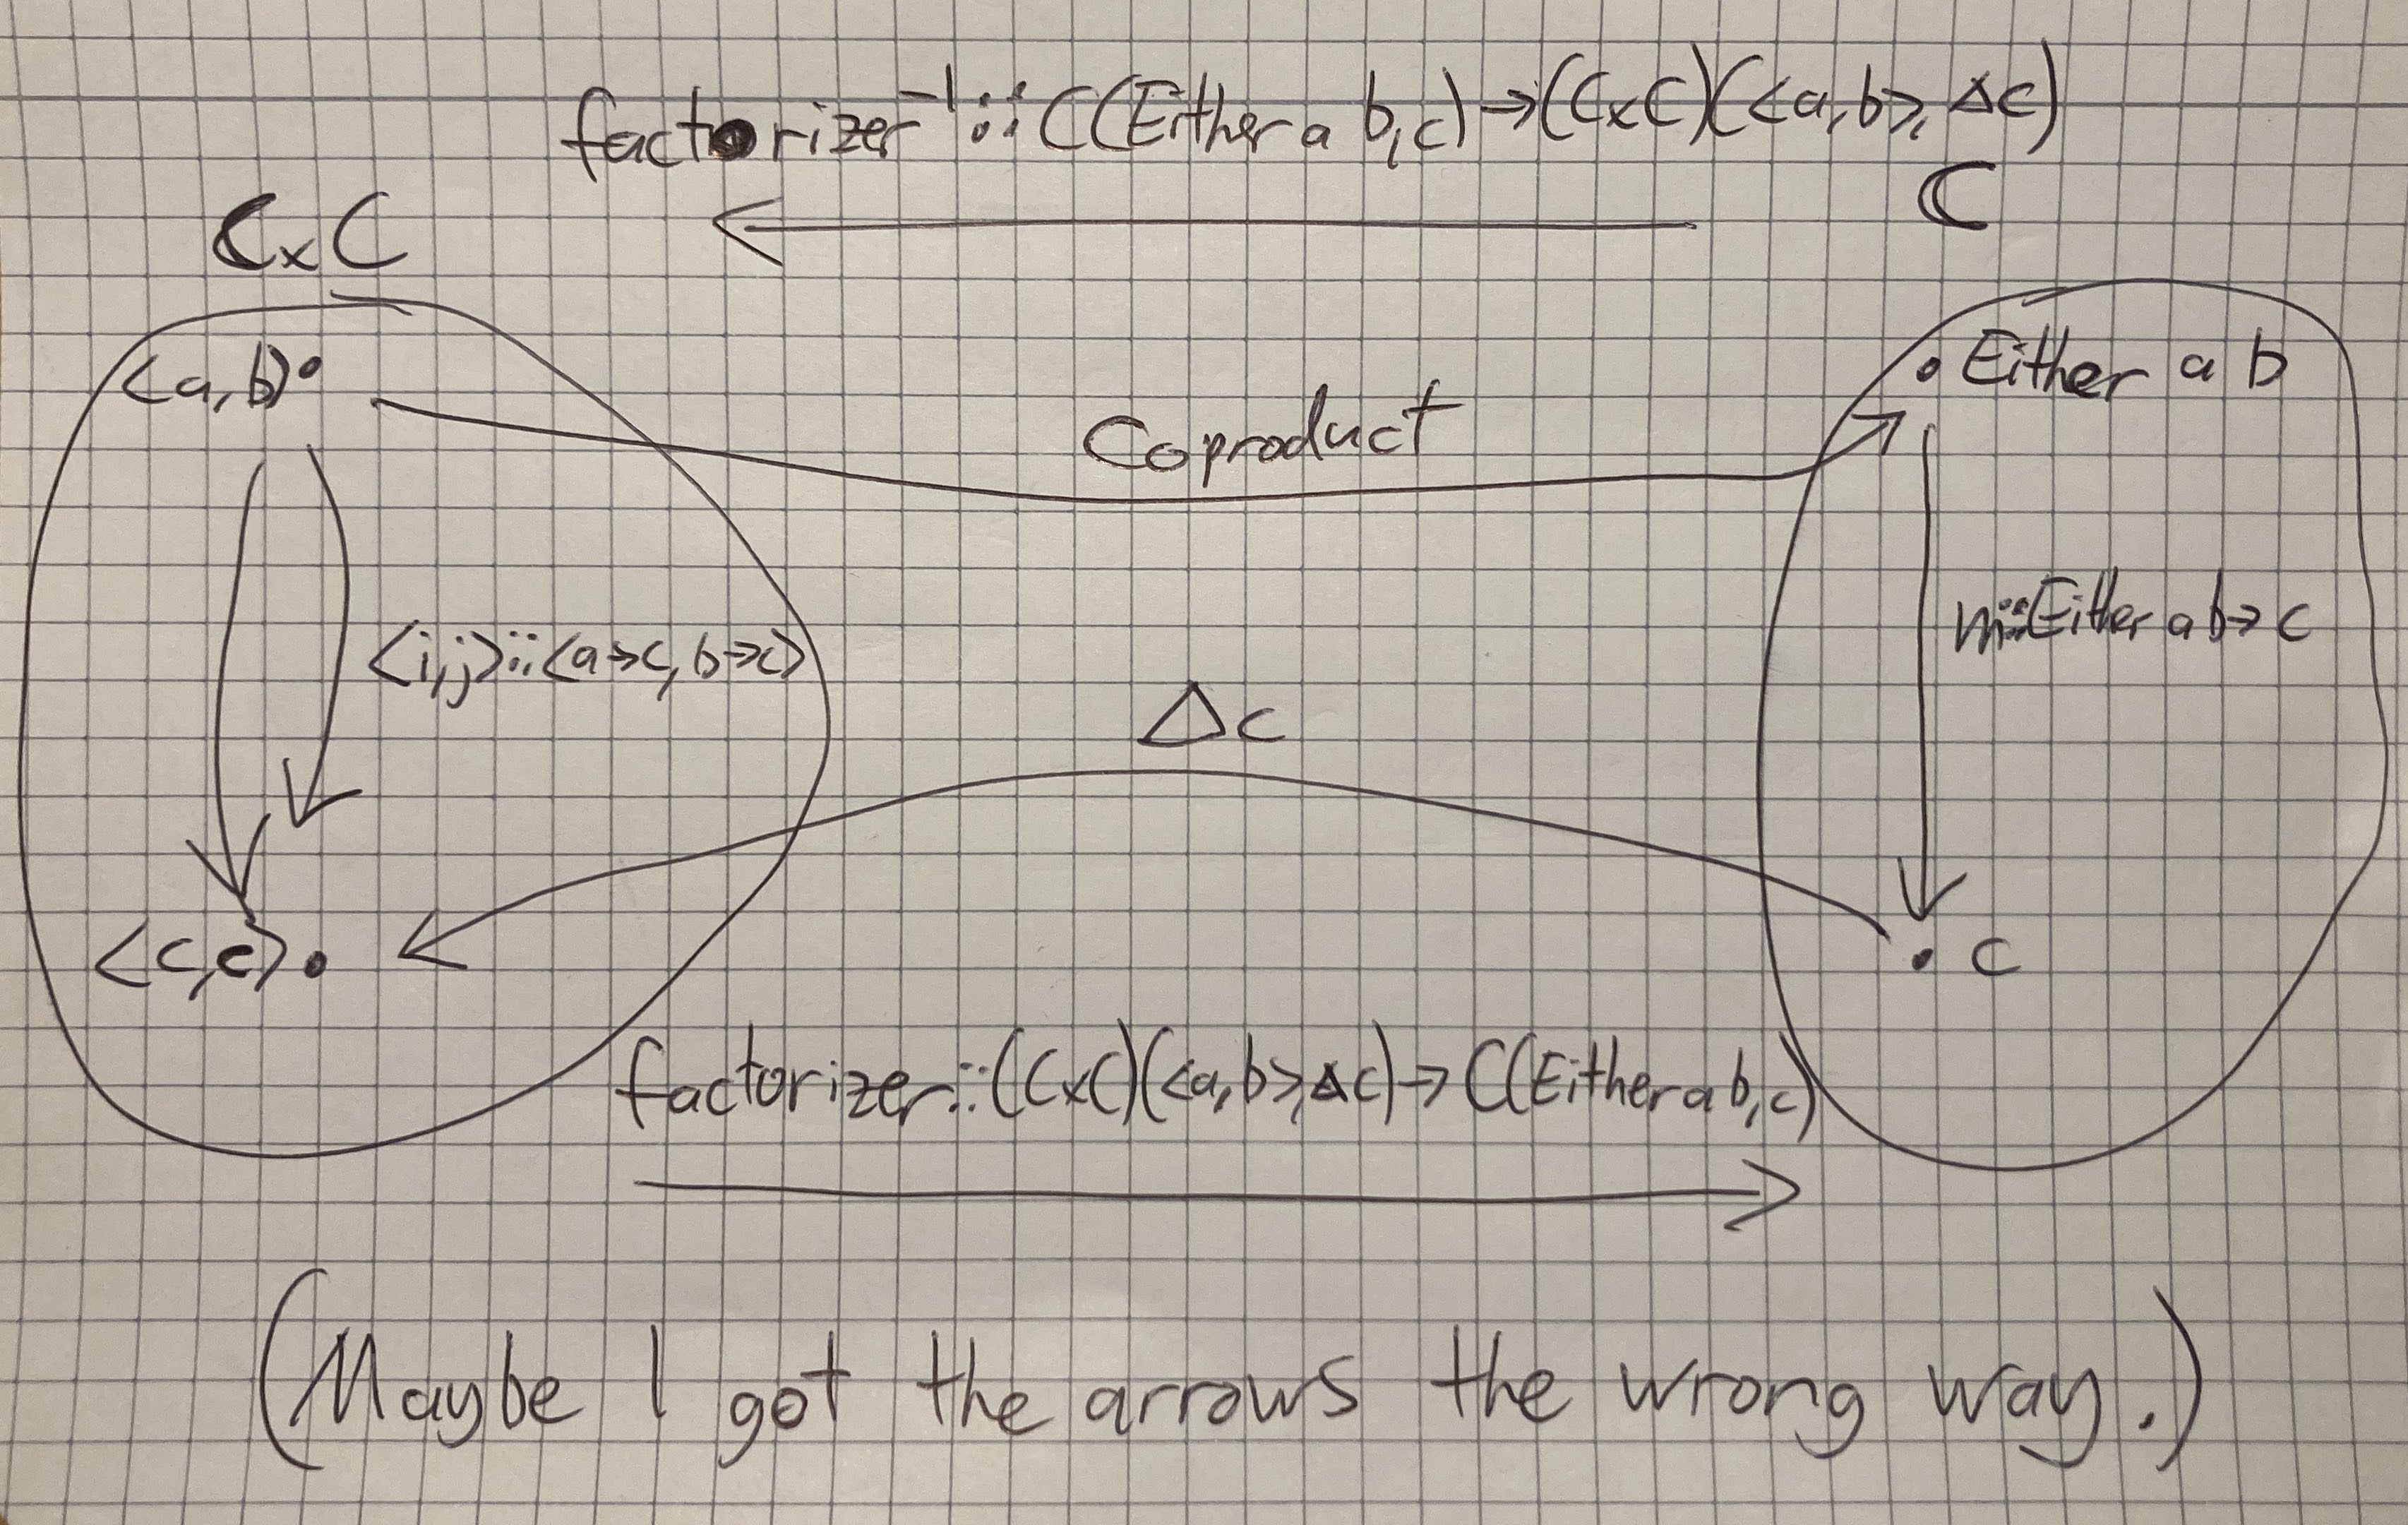 factorizer⁻¹ :: C(Either a b, c) → (C×C)(<a,b>, Δc)
C×C
C
<a,b>
Either a b
Coproduct
<i,j> :: <a→c, b→c>
m :: Either a b → c
Δc
<c,c>
c
factorizer :: (C×C)(<a,b>, Δc) → C(Either a b, c)
(Maybe I got the arrows the wrong way.)